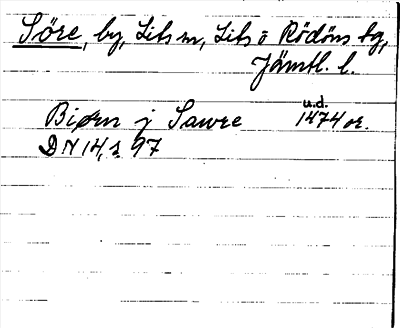 Söre, by, Lits sn, Lits o Rödöns tg,
Jämtl. l.
u.d.
Biørn j Sawre 1474 or.
DN 14, s. 97